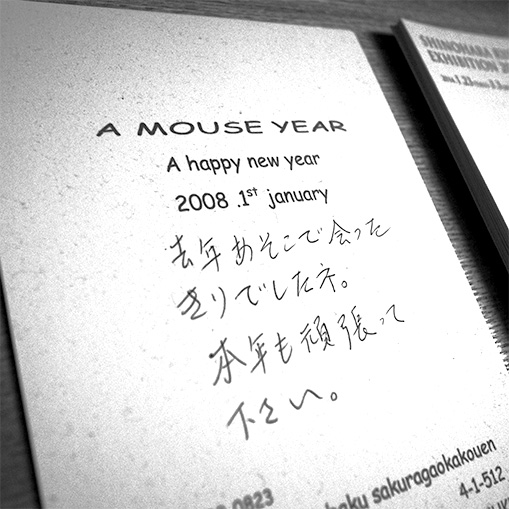 A MOUSE YEAR
A happy new year
2008 .1st january
去年あそこで会った
きりでしたネ。
本年も頑張って
下さい。
0823
aku sakuragaokakouen
4-1-512
SHINOHARA
EXHIBITION